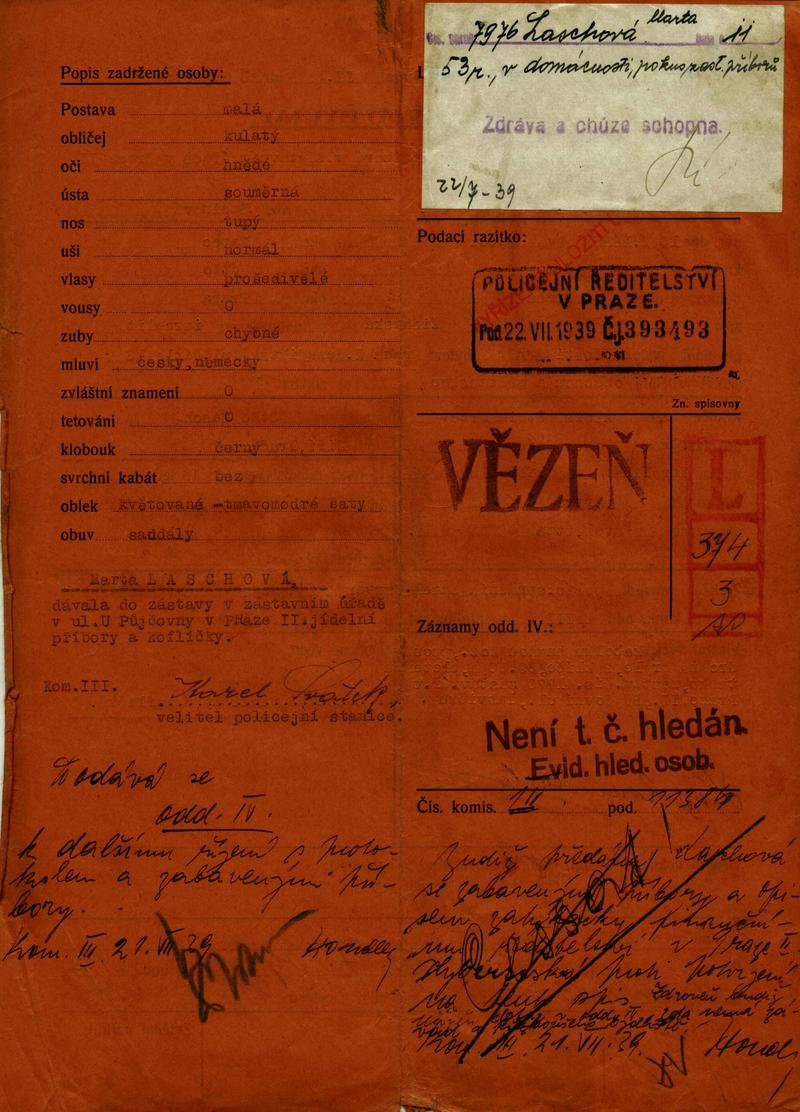 Popis zadržené osoby:
Postava malá
obličej kulatý
oči hnědé
ústa souměrná
nos tupý
uši normál
vlasy prošedivělé
vousy 0
zuby chybné
mluví česky,německy
zvláštní znamení 0
tetování 0
klobouk černý
svrchní kabát bez
oblek květované -tmavomodré šaty
obuv sandály
Marta L A S C H O V Á,
dávala do zástavy v zástavním úřadě
v ul.U Půjčovny v Praze II.jídelní
příbory a koflíčky.
Kom.III. Karel
velitel policejní stanice.
Dodává se
odd. IV.
k dalšímu řízení s proto-
kolem a zabavenými pří-
bory.
Kom. III 21. VII 39
7976 Laschová Marta 11
53 r., v domácnosti, pokus zast. příborů
Zdráva a chůze schopna.
22/7 - 39
Podací razítko:
POLICEJNÍ ŘEDITELSTVÍ
V PRAZE.
Pod. 22. VII. 1939 Č.j. 393493
Zn. spisovny
VĚZEŇ
L
374
3
Záznamy odd. IV.:
Není t. č. hledán.
Evid. hled. osob.
Čís. komis. III. pod. 11384
Laschová
se zabavenými příbory a opi-
v Praze II
spis
Kom. III 21. VII. 39.